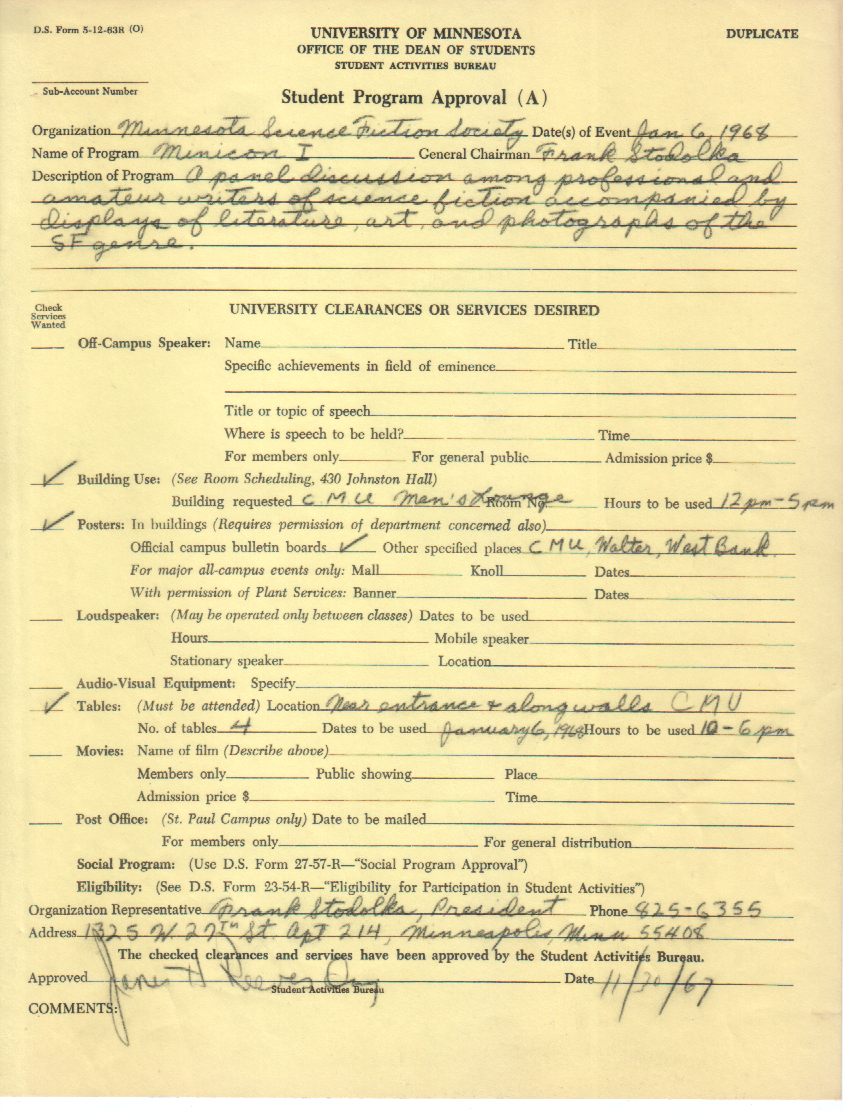 D.S. Form 5-12-63R (O)
UNIVERSITY OF MINNESOTA
DUPLICATE
OFFICE OF THE DEAN OF STUDENTS
STUDENT ACTIVITIES BUREAU
Sub-Account Number
Student Program Approval (A)
Organization Minnesota Science Fiction Society Date(s) of Event Jan 6, 1968
Name of Program Minicon I General Chairman Frank Stodolka
Description of Program A panel discussion among professional and
amateur writers of science fiction accompanied by
displays of literature, art, and photographs of the
SF genre.
Check
Services
Wanted
UNIVERSITY CLEARANCES OR SERVICES DESIRED
Off-Campus Speaker: Name Title
Specific achievements in field of eminence
Title or topic of speech
Where is speech to be held? Time
For members only For general public Admission price $
✓ Building Use: (See Room Scheduling, 430 Johnston Hall)
Building requested CMU Men's Lounge Room No. Hours to be used 12pm-5pm
✓ Posters: In buildings (Requires permission of department concerned also)
Official campus bulletin boards ✓ Other specified places CMU, Walter, West Bank
For major all-campus events only: Mall Knoll Dates
With permission of Plant Services: Banner Dates
Loudspeaker: (May be operated only between classes) Dates to be used
Hours Mobile speaker
Stationary speaker Location
Audio-Visual Equipment: Specify
✓ Tables: (Must be attended) Location Near entrance & along walls CMU
No. of tables 4 Dates to be used January 6, 1968 Hours to be used 10-6 pm
Movies: Name of film (Describe above)
Members only Public showing Place
Admission price $ Time
Post Office: (St. Paul Campus only) Date to be mailed
For members only For general distribution
Social Program: (Use D.S. Form 27-57-R—"Social Program Approval")
Eligibility: (See D.S. Form 23-54-R—"Eligibility for Participation in Student Activities")
Organization Representative Frank Stodolka, President Phone 825-6355
Address 1325 W. 27th St. Apt 214, Minneapolis, Minn 55408
The checked clearances and services have been approved by the Student Activities Bureau.
Approved Date 11/30/67
Student Activities Bureau
COMMENTS: